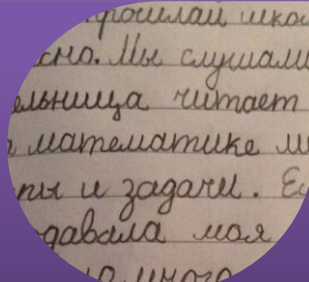 сно. Мы слушали
ельница читает
математике
ры и задачи. Ес
давала моя
много